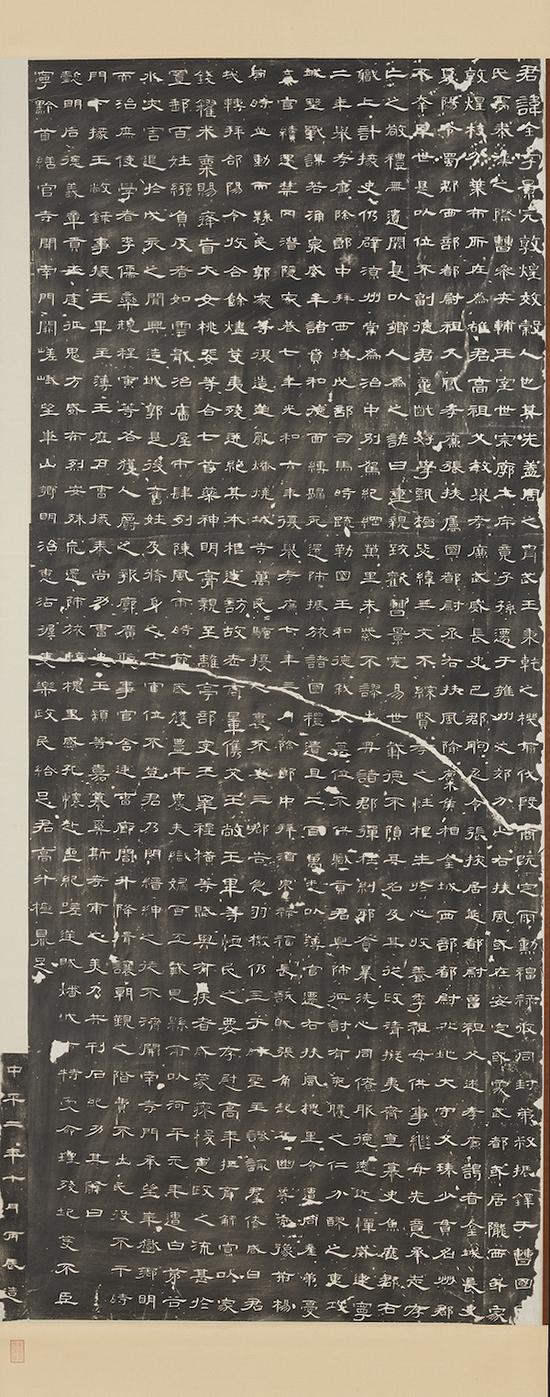 君諱全字景完敦煌效穀人也其先蓋周之胄武王秉乾之機翦伐殷商既定爾勳福祿攸同封弟叔振鐸于曹國
氏焉秦漢之際曹參夾輔王室世宗廓土斥竟子孫遷于雍州之郊分止右扶風或在安定或處武都或居隴西或家
敦煌枝分葉布所在為雄君高祖父敏舉孝廉武威長史巴郡朐忍令張掖居延都尉曾祖父述孝廉謁者金城長史
夏陽令蜀郡西部都尉祖父鳳孝廉張掖屬國都尉丞右扶風隃麋侯相金城西部都尉北地大守父琫少貫名州郡
不幸早世是以位不副德君童齔好學甄極毖緯無文不綜賢孝之性根生於心收養季祖母供事繼母先意承志存
亡之敬禮無遺闕是以鄉人為之諺曰重親致歡曹景完易世載德不隕其名及其從政清擬夷齊直慕史魚歷郡右
職上計掾史仍辟涼州常為治中別駕紀綱萬里朱紫不謬出典諸郡彈枉糾邪貪暴洗心同僚服德遠近憚威建寧
二年舉孝廉除郎中拜西域戊部司馬時疏勒國王和德弒父篡位不供職貢君興師征討有吮膿之仁分醪之惠攻
城野戰謀若涌泉威牟諸賁和德面縛歸死還師振旅諸國禮遺且二百萬悉以薄官遷右扶風槐里令遭同產弟憂
棄官續遇禁网潛隱家巷七年光和六年復舉孝廉七年三月除郎中拜酒泉祿福長訞賊張角起兵幽冀兗豫荊楊
同時並動而縣民郭家等復造逆亂燔燒城寺萬民騷擾人裹不安三郡告急羽檄仍至于時聖主諮諏群僚咸曰君
哉轉拜郃陽令收合餘燼芟夷殘迸絕其本根遂訪故老商量儁艾王敞王畢等恤民之要存慰高年撫育鰥寡以家
錢糴米粟賜癃盲大女桃婓等合七首藥神明膏親至離亭部吏王宰程橫等賦與有疾者咸蒙瘳悛惠政之流甚於
置郵百姓繈負反者如雲戢治廧屋市肆列陳風雨時節歲獲豐年農夫織婦百工戴恩縣前以河平元年遭白茅谷
水灾害退於戌亥之間興造城郭是後舊姓及脩身之士官位不登君乃閔縉紳之徒不濟開南寺門承望華嶽鄉明
而治庶使學者李儒欒規程寅等各獲人爵之報廓廣聽事官舍廷曹廊閣升降揖讓朝覲之階費不出民役不干時
門下掾王敞錄事掾王畢主薄王歷戶曹掾秦尚功曹史王顓等嘉慕奚斯考甫之美乃共刊石紀功其辭曰
懿明后德義章貢王庭征鬼方威布烈安殊巟還師旅臨槐里感孔懷赴喪紀嗟逆賊燔城市特受命理殘圮芟不臣
寧黔首繕官寺開南門闕嵯峨望華山鄉明治惠沾渥吏樂政民給足君高升極鼎足
中平二年十月丙辰造